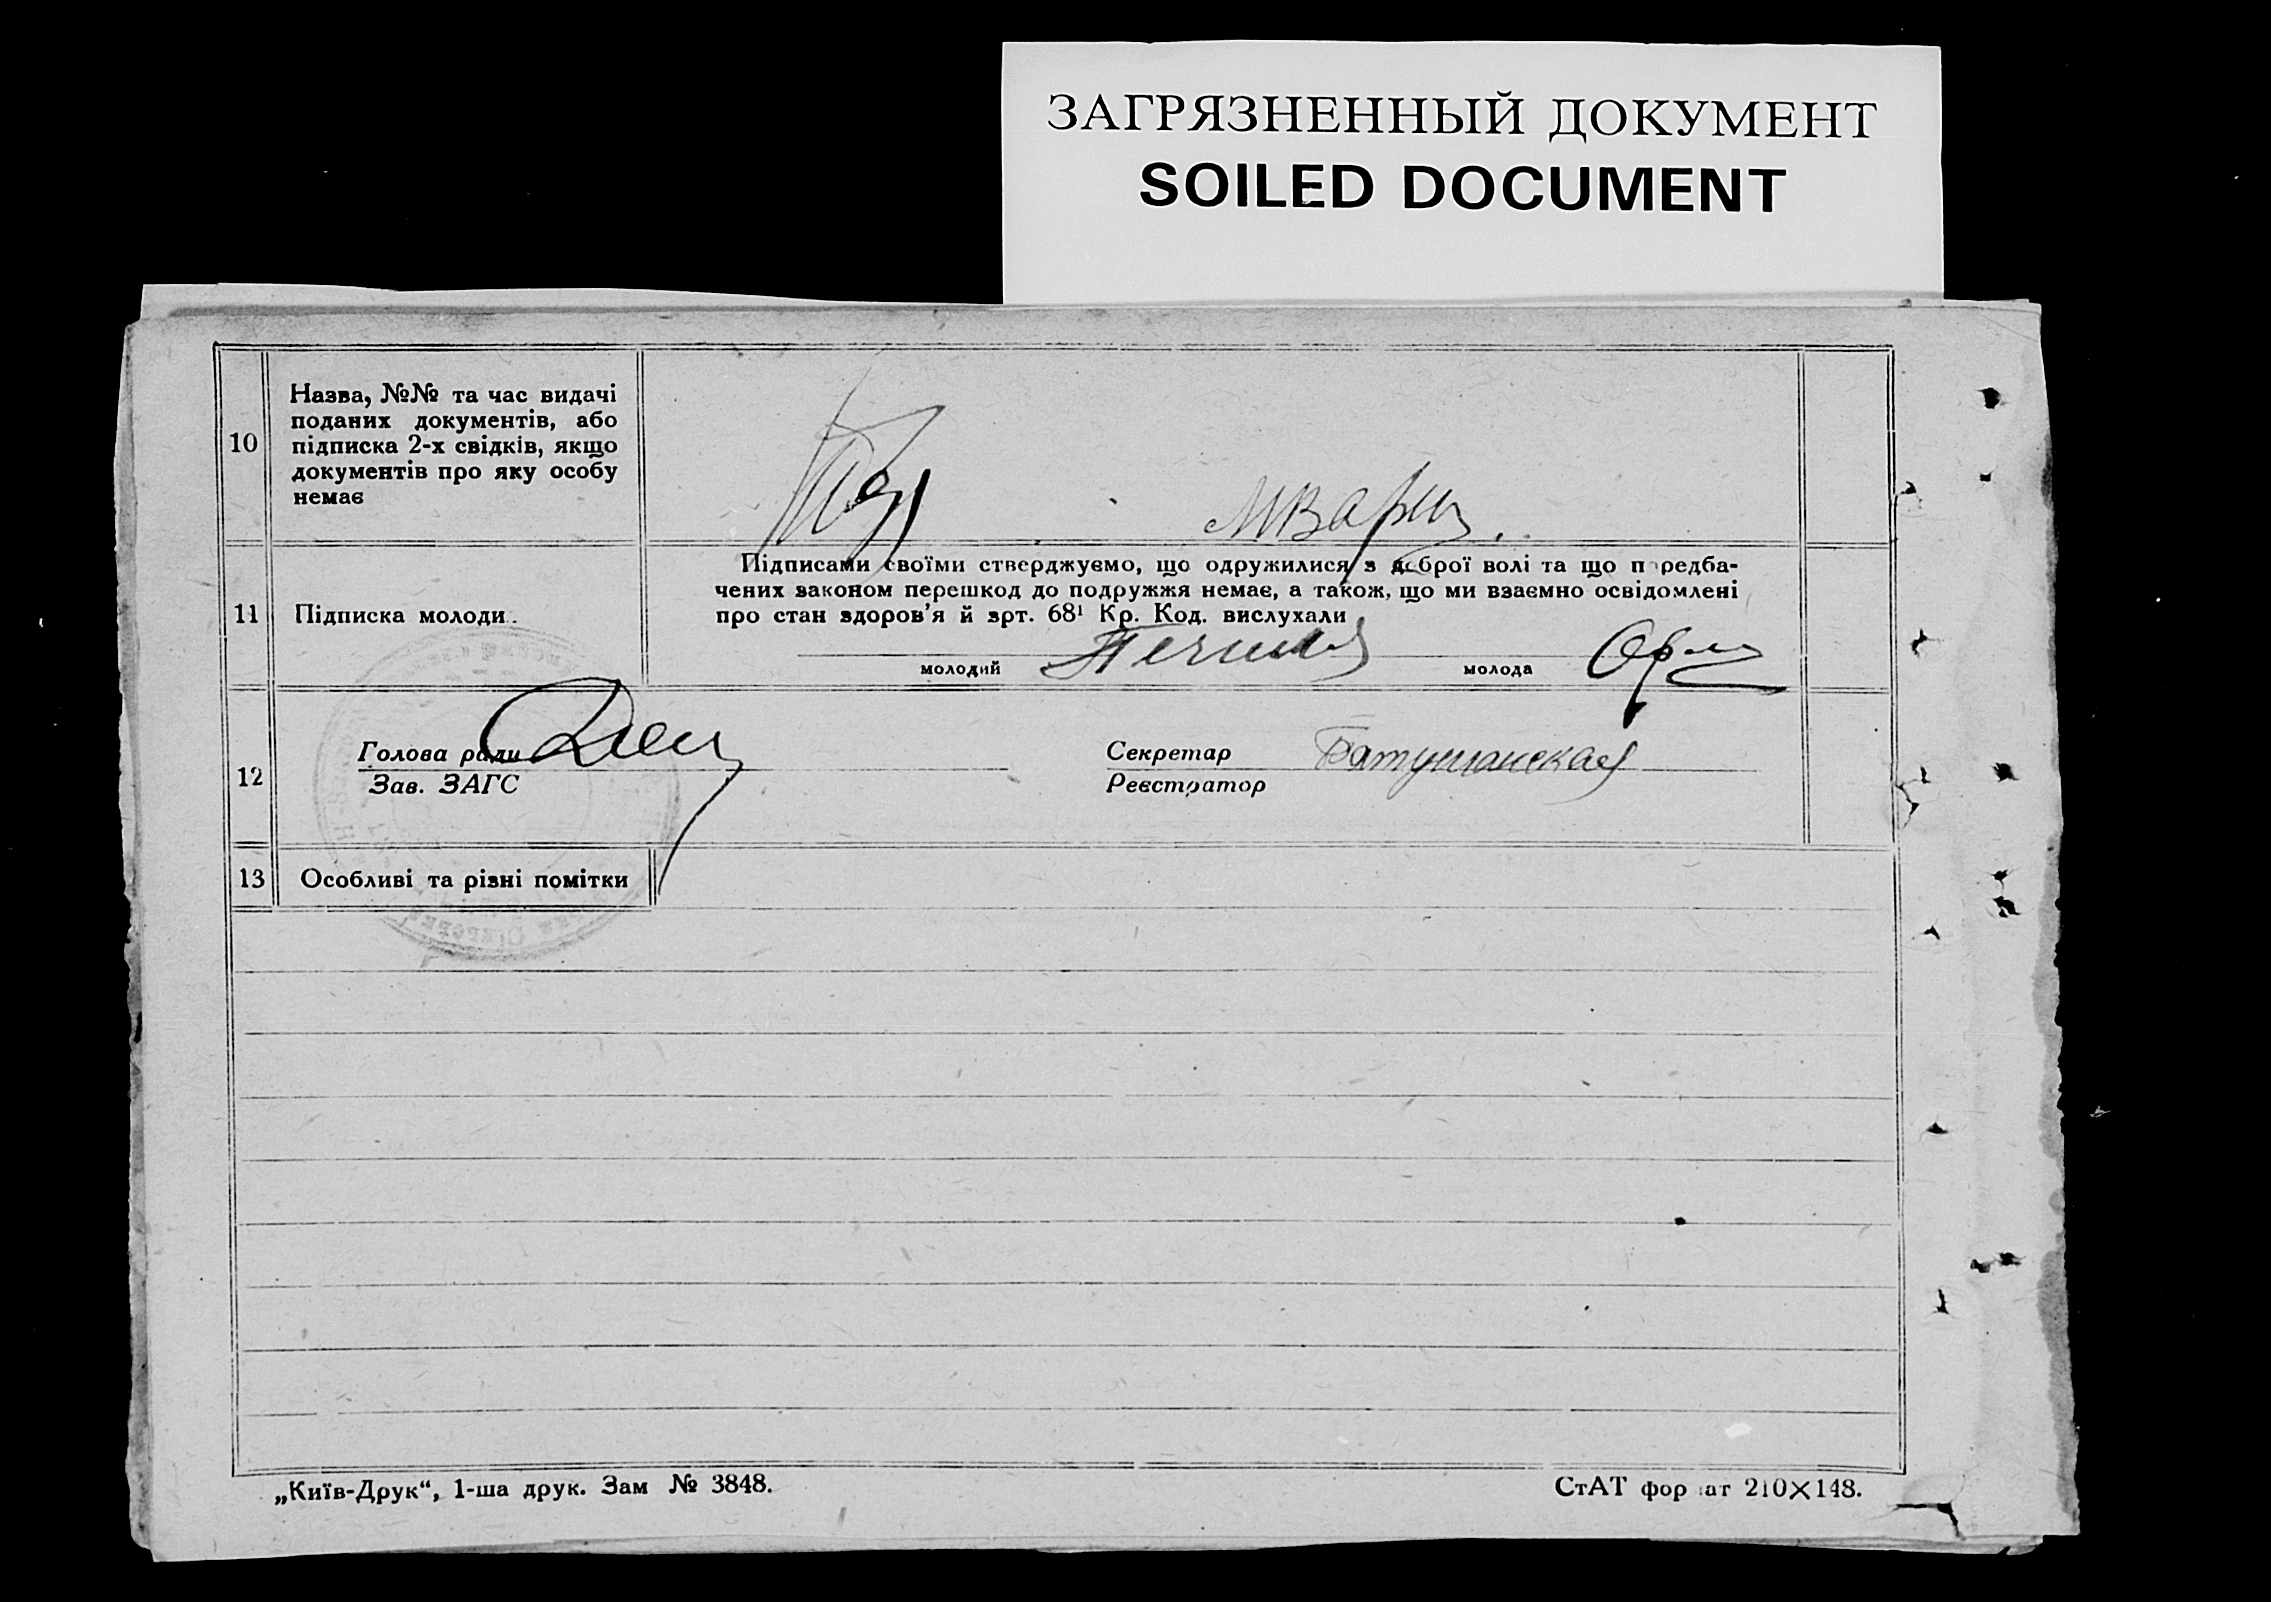 ЗАГРЯЗНЕННЫЙ ДОКУМЕНТ
SOILED DOCUMENT
10
Назва, №№ та час видачі
поданих документів, або
підписка 2-х свідків, якщо
документів про яку особу
немає
11
Підписка молоди
Підписами своїми стверджуємо, що одружилися з доброї волі та що передба-
чених законом перешкод до подружжя немає, а також, що ми взаємно освідомлені
про стан здоров'я й зрт. 68¹ Кр. Код. вислухали
молодий
молода
12
Голова ради
Зав. ЗАГС
Секретар Батушанская
Реєстратор
13
Особливі та різні помітки
„Київ-Друк“, 1-ша друк. Зам № 3848.
СтАТ формат 210×148.